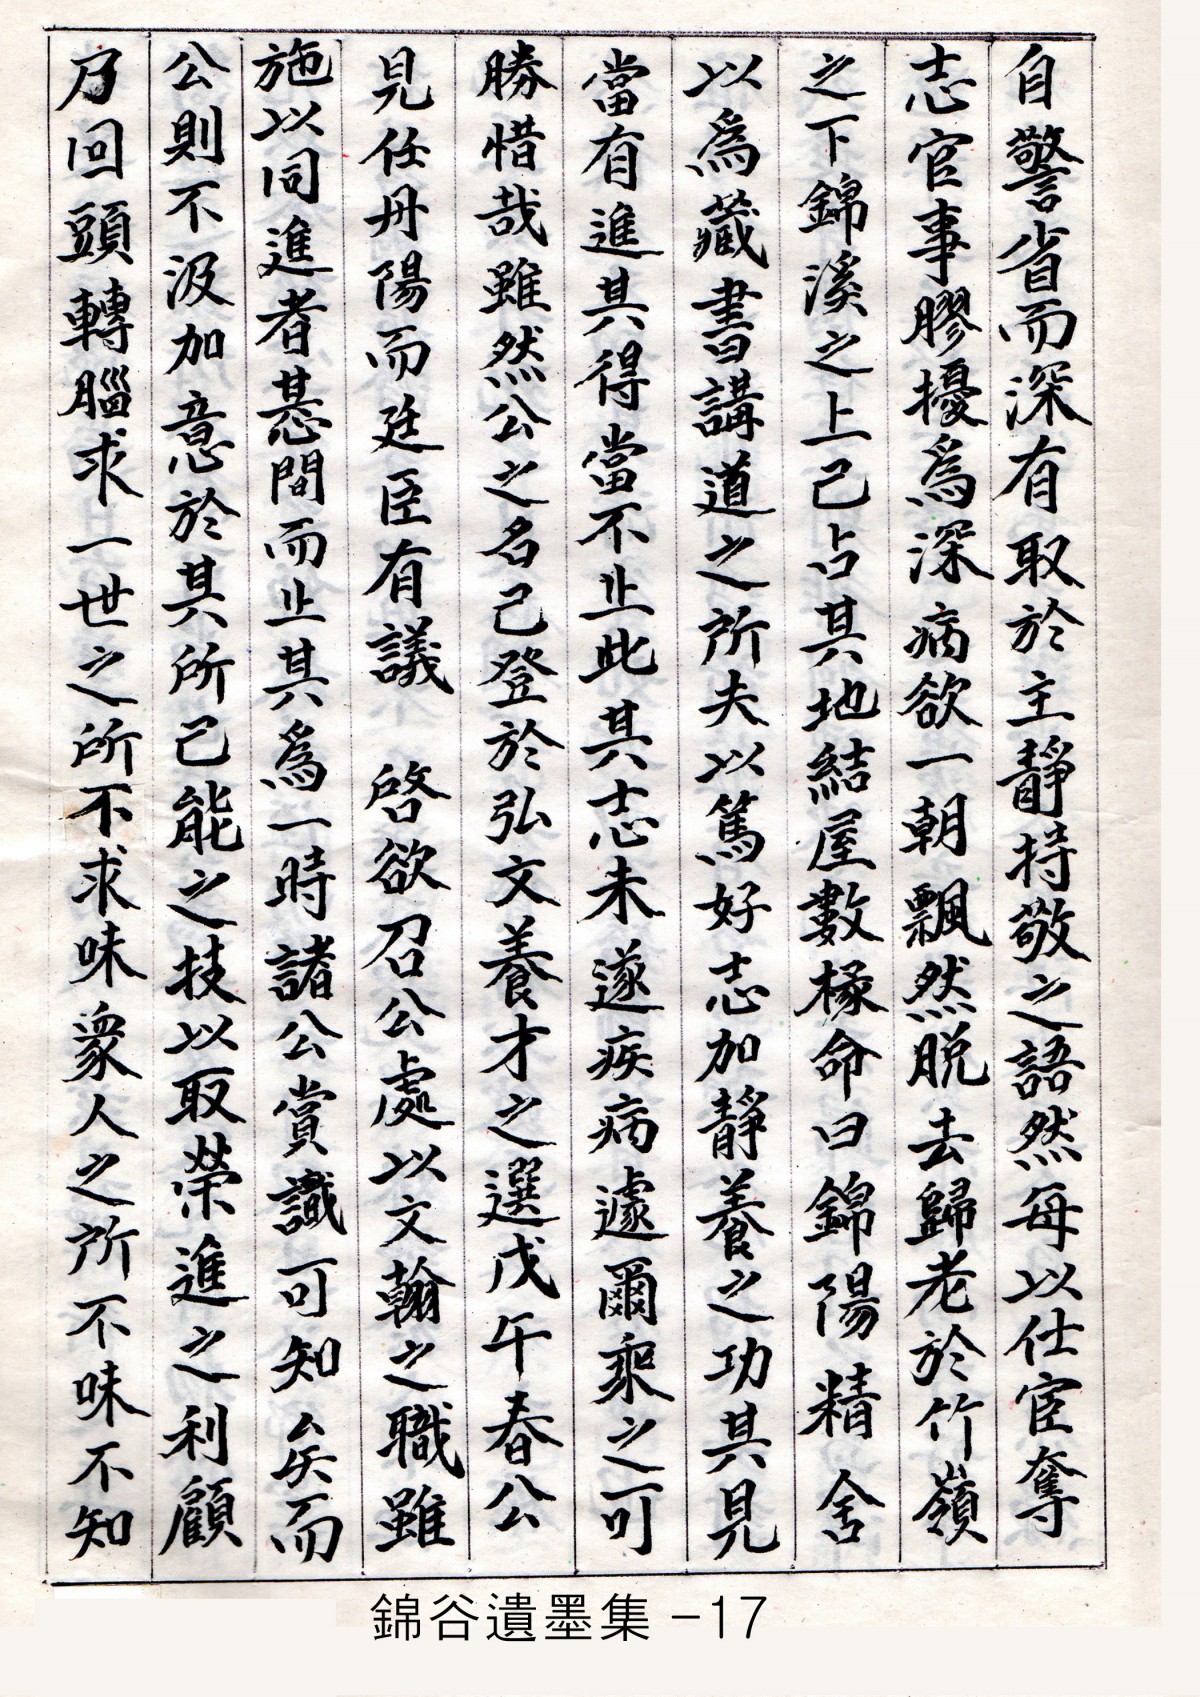 自警省而深有取於主靜持敬之語然每以仕宦奪
志官事膠擾爲深病欲一朝飄然脱去歸老於竹嶺
之下錦溪之上己占其地結屋數椽命曰錦陽精舍
以爲藏書講道之所夫以篤好志加靜養之功其見
當有進其得當不止此其志未遂疾病遽爾乘之可
勝惜哉雖然公之名己登於弘文養才之選戊午春公
見任丹陽而廷臣有議 啓欲召公處以文翰之職雖
施以同進者惎間而止其爲一時諸公賞識可知矣而
公則不汲加意於其所己能之技以取榮進之利顧
乃回頭轉腦求一世之所不求味衆人之所不味不知
錦谷遺墨集 -17